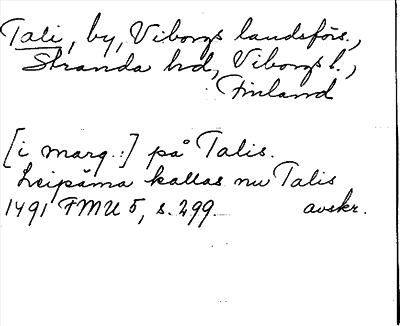 Tali, by, Viborgs landsförs.,
Stranda hd, Viborgs l.,
Finland
[i marg.:] på Talis.
Leipäma kallas nu Talis
1491 FMU 5, s. 299. avskr.